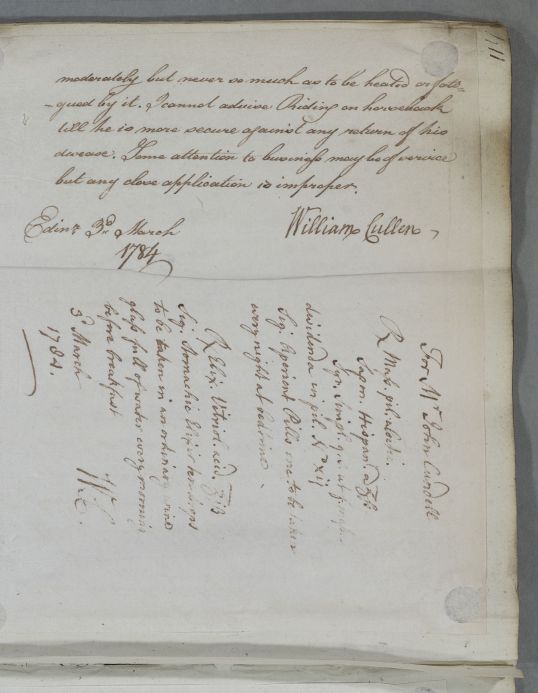 moderately but never so much as to be heated or fati=
-gued by it. I cannot advise Riding on horseback
till he is more secure against any return of his
disease. Some attention to business may be of service
but any close application is improper.
Edinr. 3d. March
1784
William Cullen
For Mr. John Cundell
R Mass. pil. aloetic.
Sapon. Hispan. a ʒfs
Syr. simpl. q. s. ut f. massa
dividenda in pil. N. xxij
Sig. Aperient Pills one to be taken
every night at bedtime.
R Elix. Vitriol. acid. ℥ifs
Sig. Stomachic Elixir ten drops
to be taken in an ordinary wine
glass full of water every morning
before breakfast.
3d March
1784.
W. C.